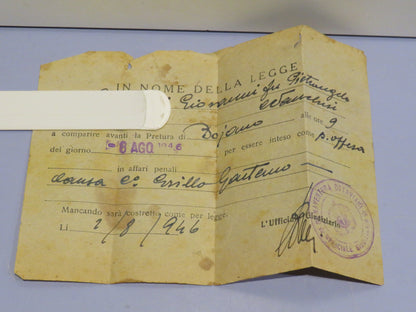 IN NOME DELLA LEGGE
Giovanni fu Pietrangelo
a comparire avanti la Pretura di Bojano alle ore 9
del giorno 8 AGO. 1946 per essere inteso come p. offesa
in affari penali
causa Co Grillo Gaetano
Mancando sarà costretto come per legge.
Li 2/8/1946
L'Ufficiale Giudiziario